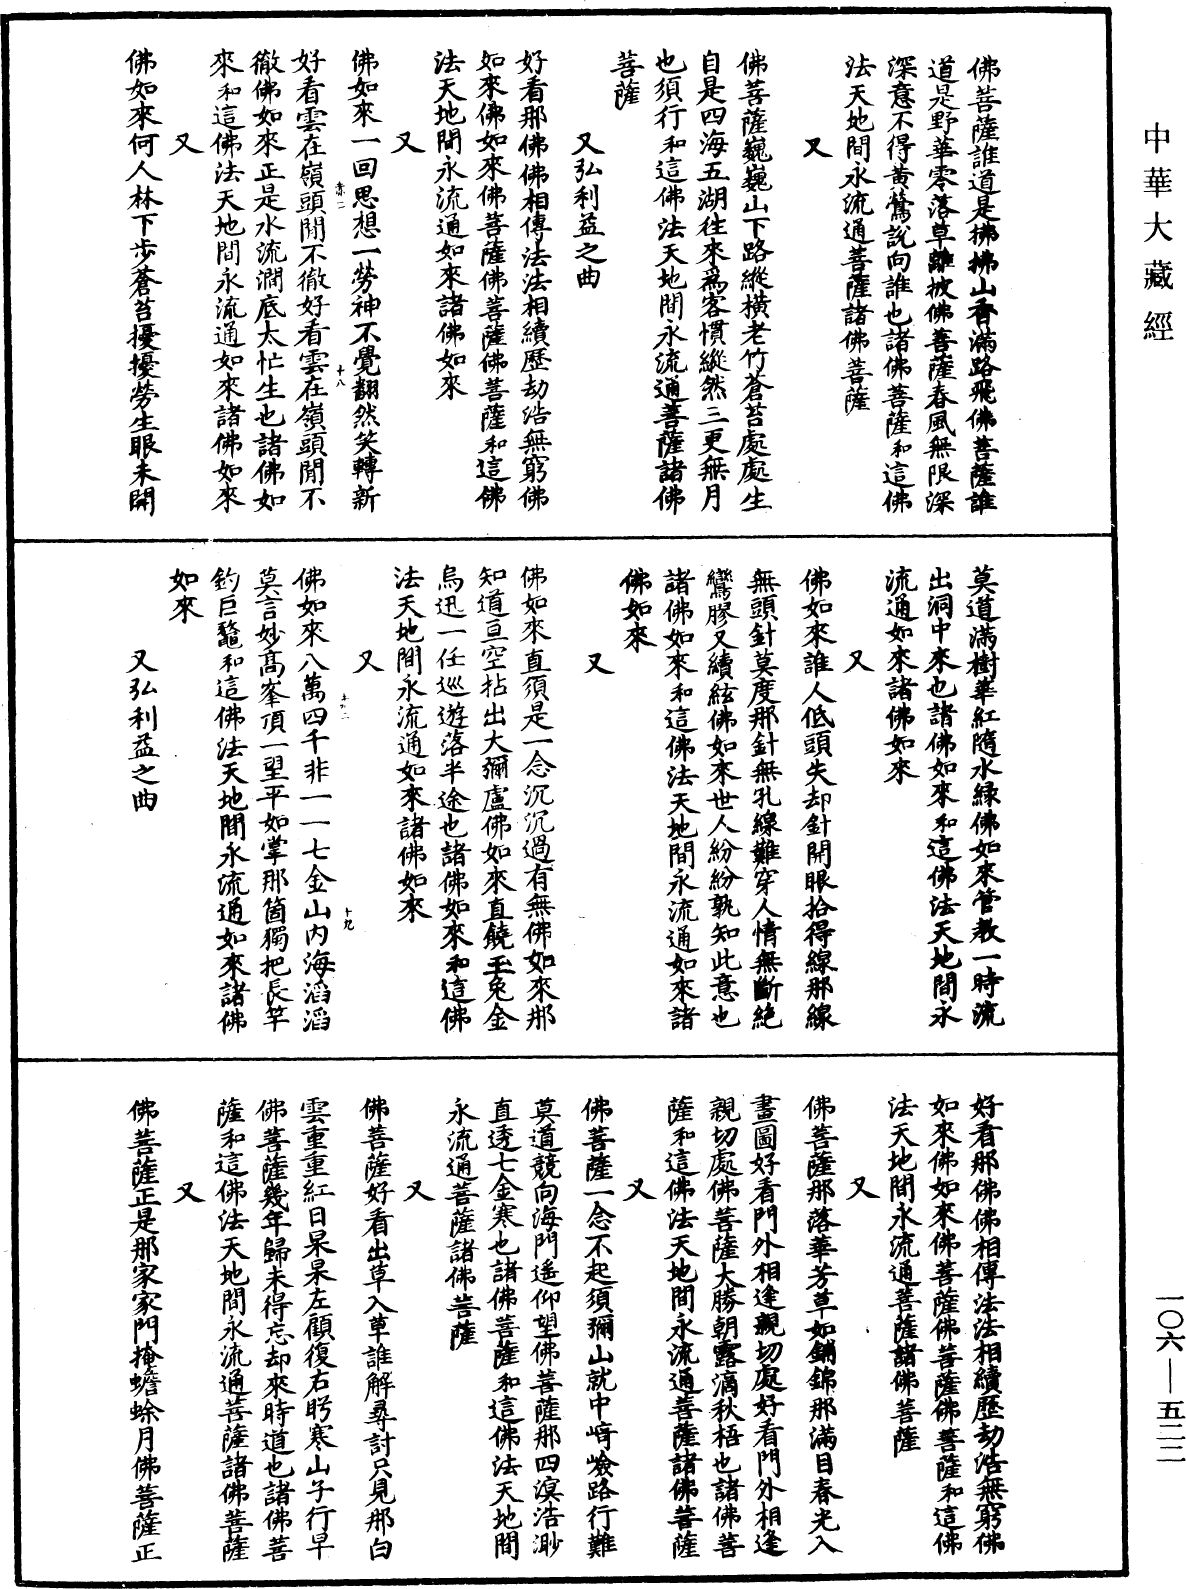 中華大藏經
佛菩薩誰道是拂拂山香滿路飛佛菩薩誰
道是野華零落草離披佛菩薩春風無限深
深意不得黃鶯說向誰也諸佛菩薩和這佛
法天地間永流通菩薩諸佛菩薩
又
佛菩薩巍巍山下路縱橫老竹蒼苔處處生
自是四海五湖往來爲客慣縱然三更無月
也須行和這佛法天地間永流通菩薩諸佛
菩薩
又弘利益之曲
好看那佛佛相傳法法相續歷劫浩無窮佛
如來佛如來佛菩薩佛菩薩佛菩薩和這佛
法天地間永流通如來諸佛如來
又
佛如來一回思想一勞神不覺翻然笑轉新
好看雲在嶺頭閒不徹好看雲在嶺頭閒不
徹佛如來正是水流澗底太忙生也諸佛如
來和這佛法天地間永流通如來諸佛如來
又
佛如來何人林下步蒼苔擾擾勞生眼未開
莫道滿樹華紅隨水綠佛如來管教一時流
出洞中來也諸佛如來和這佛法天地間永
流通如來諸佛如來
又
佛如來誰人低頭失却針開眼拾得線那線
無頭針莫度那針無孔線難穿人情無斷絕
鸞膠又續絃佛如來世人紛紛孰知此意也
諸佛如來和這佛法天地間永流通如來諸
佛如來
又
佛如來直須是一念沉沉過有無佛如來那
知道亘空拈出大彌盧佛如來直饒玉兔金
烏迅一任巡遊落半途也諸佛如來和這佛
法天地間永流通如來諸佛如來
又
佛如來八萬四千非一一七金山內海滔滔
莫言妙高峯頂一望平如掌那箇獨把長竿
釣巨鼇和這佛法天地間永流通如來諸佛
如來
又弘利益之曲
好看那佛佛相傳法法相續歷劫浩無窮佛
如來佛如來佛菩薩佛菩薩佛菩薩和這佛
法天地間永流通菩薩諸佛菩薩
又
佛菩薩那落華芳草如鋪錦那滿目春光入
畫圖好看門外相逢親切處好看門外相逢
親切處佛菩薩大勝朝露滴秋梧也諸佛菩
薩和這佛法天地間永流通菩薩諸佛菩薩
又
佛菩薩一念不起須彌山就中﨑嶮路行難
莫道競向海門遙仰望佛菩薩那四溟浩渺
直透七金寒也諸佛菩薩和這佛法天地間
永流通菩薩諸佛菩薩
又
佛菩薩好看出草入草誰解尋討只見那白
雲重重紅日杲杲左顧復右盻寒山子行早
佛菩薩幾年歸未得忘却來時道也諸佛菩
薩和這佛法天地間永流通菩薩諸佛菩薩
又
佛菩薩正是那家家門掩蟾蜍月佛菩薩正
一〇六—五二二